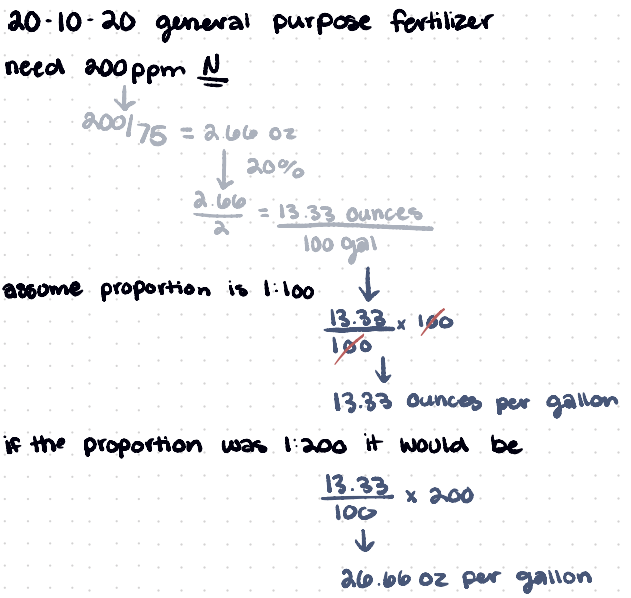 20-10-20 general purpose fertilizer
need 200ppm N
200/75 = 2.66 oz
20%
2.66 / 2 = 13.33 ounces / 100 gal
assume proportion is 1:100
13.33 / 100 x 100
13.33 ounces per gallon
if the proportion was 1:200 it would be
13.33 / 100 x 200
26.66 oz per gallon